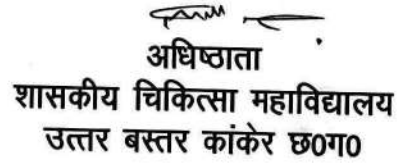 अधिष्ठाता
शासकीय चिकित्सा महाविद्यालय
उत्तर बस्तर कांकेर छ0ग0